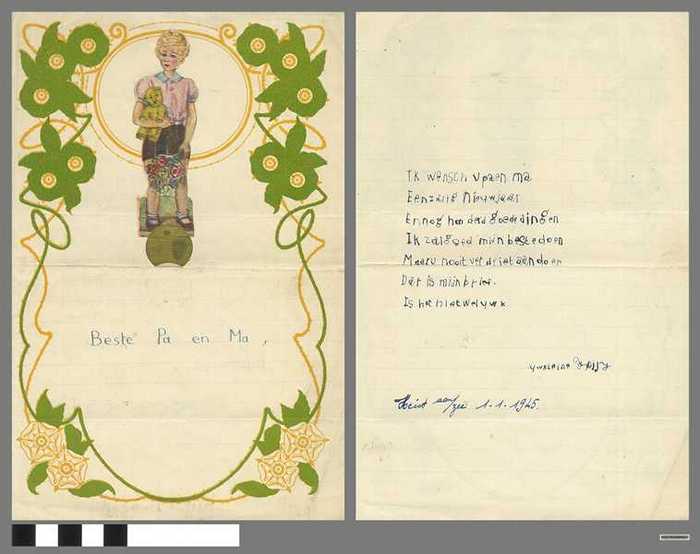 Beste Pa en Ma,
Ik wensch u pa en ma
Een zalig Nieuwjaar
En nog honderd goede dingen
Ik zal goed mijn beste doen
Maar u nooit verdriet aendoen
Dat is mijn brief.
Is het niet
Heist aan/zee 1-1-1945.